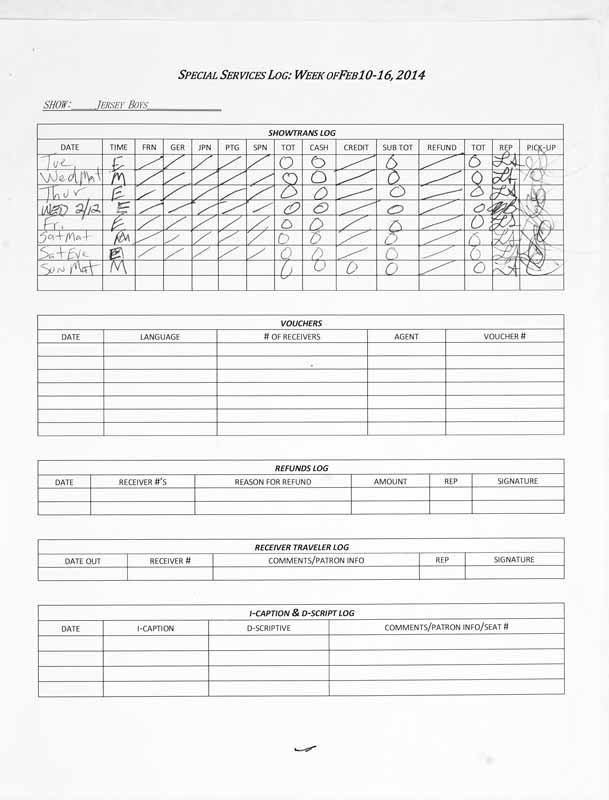 SPECIAL SERVICES LOG: WEEK OFFEB10-16, 2014
SHOW: JERSEY BOYS
SHOWTRANS LOG
DATE TIME FRN GER JPN PTG SPN TOT CASH CREDIT SUB TOT REFUND TOT REP PICK-UP
Tue E / / / / / 0 0 / 0 / 0 LA
Wed Mat M / / / / / 0 0 / 0 / 0 LA
Thur E / / / / / 0 0 / 0 / 0 LA
WED 2/12 E / / / / / 0 0 / 0 / 0
Fri E / / / / / 0 0 / 0 / 0 LA
Sat Mat M / / / / / 0 0 / 0 / 0 LA
Sat Eve E / / / / / 0 0 / 0 / 0 LA
Sun Mat M / / / / / 0 0 0 0 / 0 LA
VOUCHERS
DATE LANGUAGE # OF RECEIVERS AGENT VOUCHER #
REFUNDS LOG
DATE RECEIVER #'S REASON FOR REFUND AMOUNT REP SIGNATURE
RECEIVER TRAVELER LOG
DATE OUT RECEIVER # COMMENTS/PATRON INFO REP SIGNATURE
I-CAPTION & D-SCRIPT LOG
DATE I-CAPTION D-SCRIPTIVE COMMENTS/PATRON INFO/SEAT #